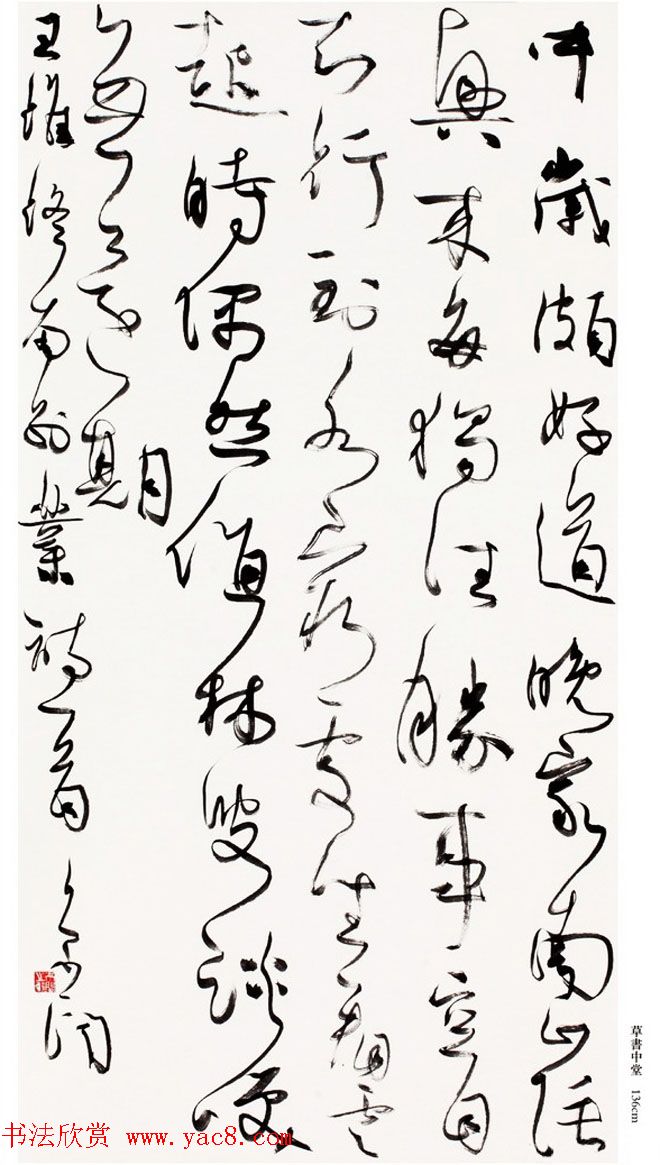 中歲頗好道晚家南山陲
興來每獨往勝事空自
知行到水窮處坐看雲
起時偶然值林叟談咲
無還期
王維終南別業詩一首
草書中堂 136cm
书法欣赏 www.yac8.com